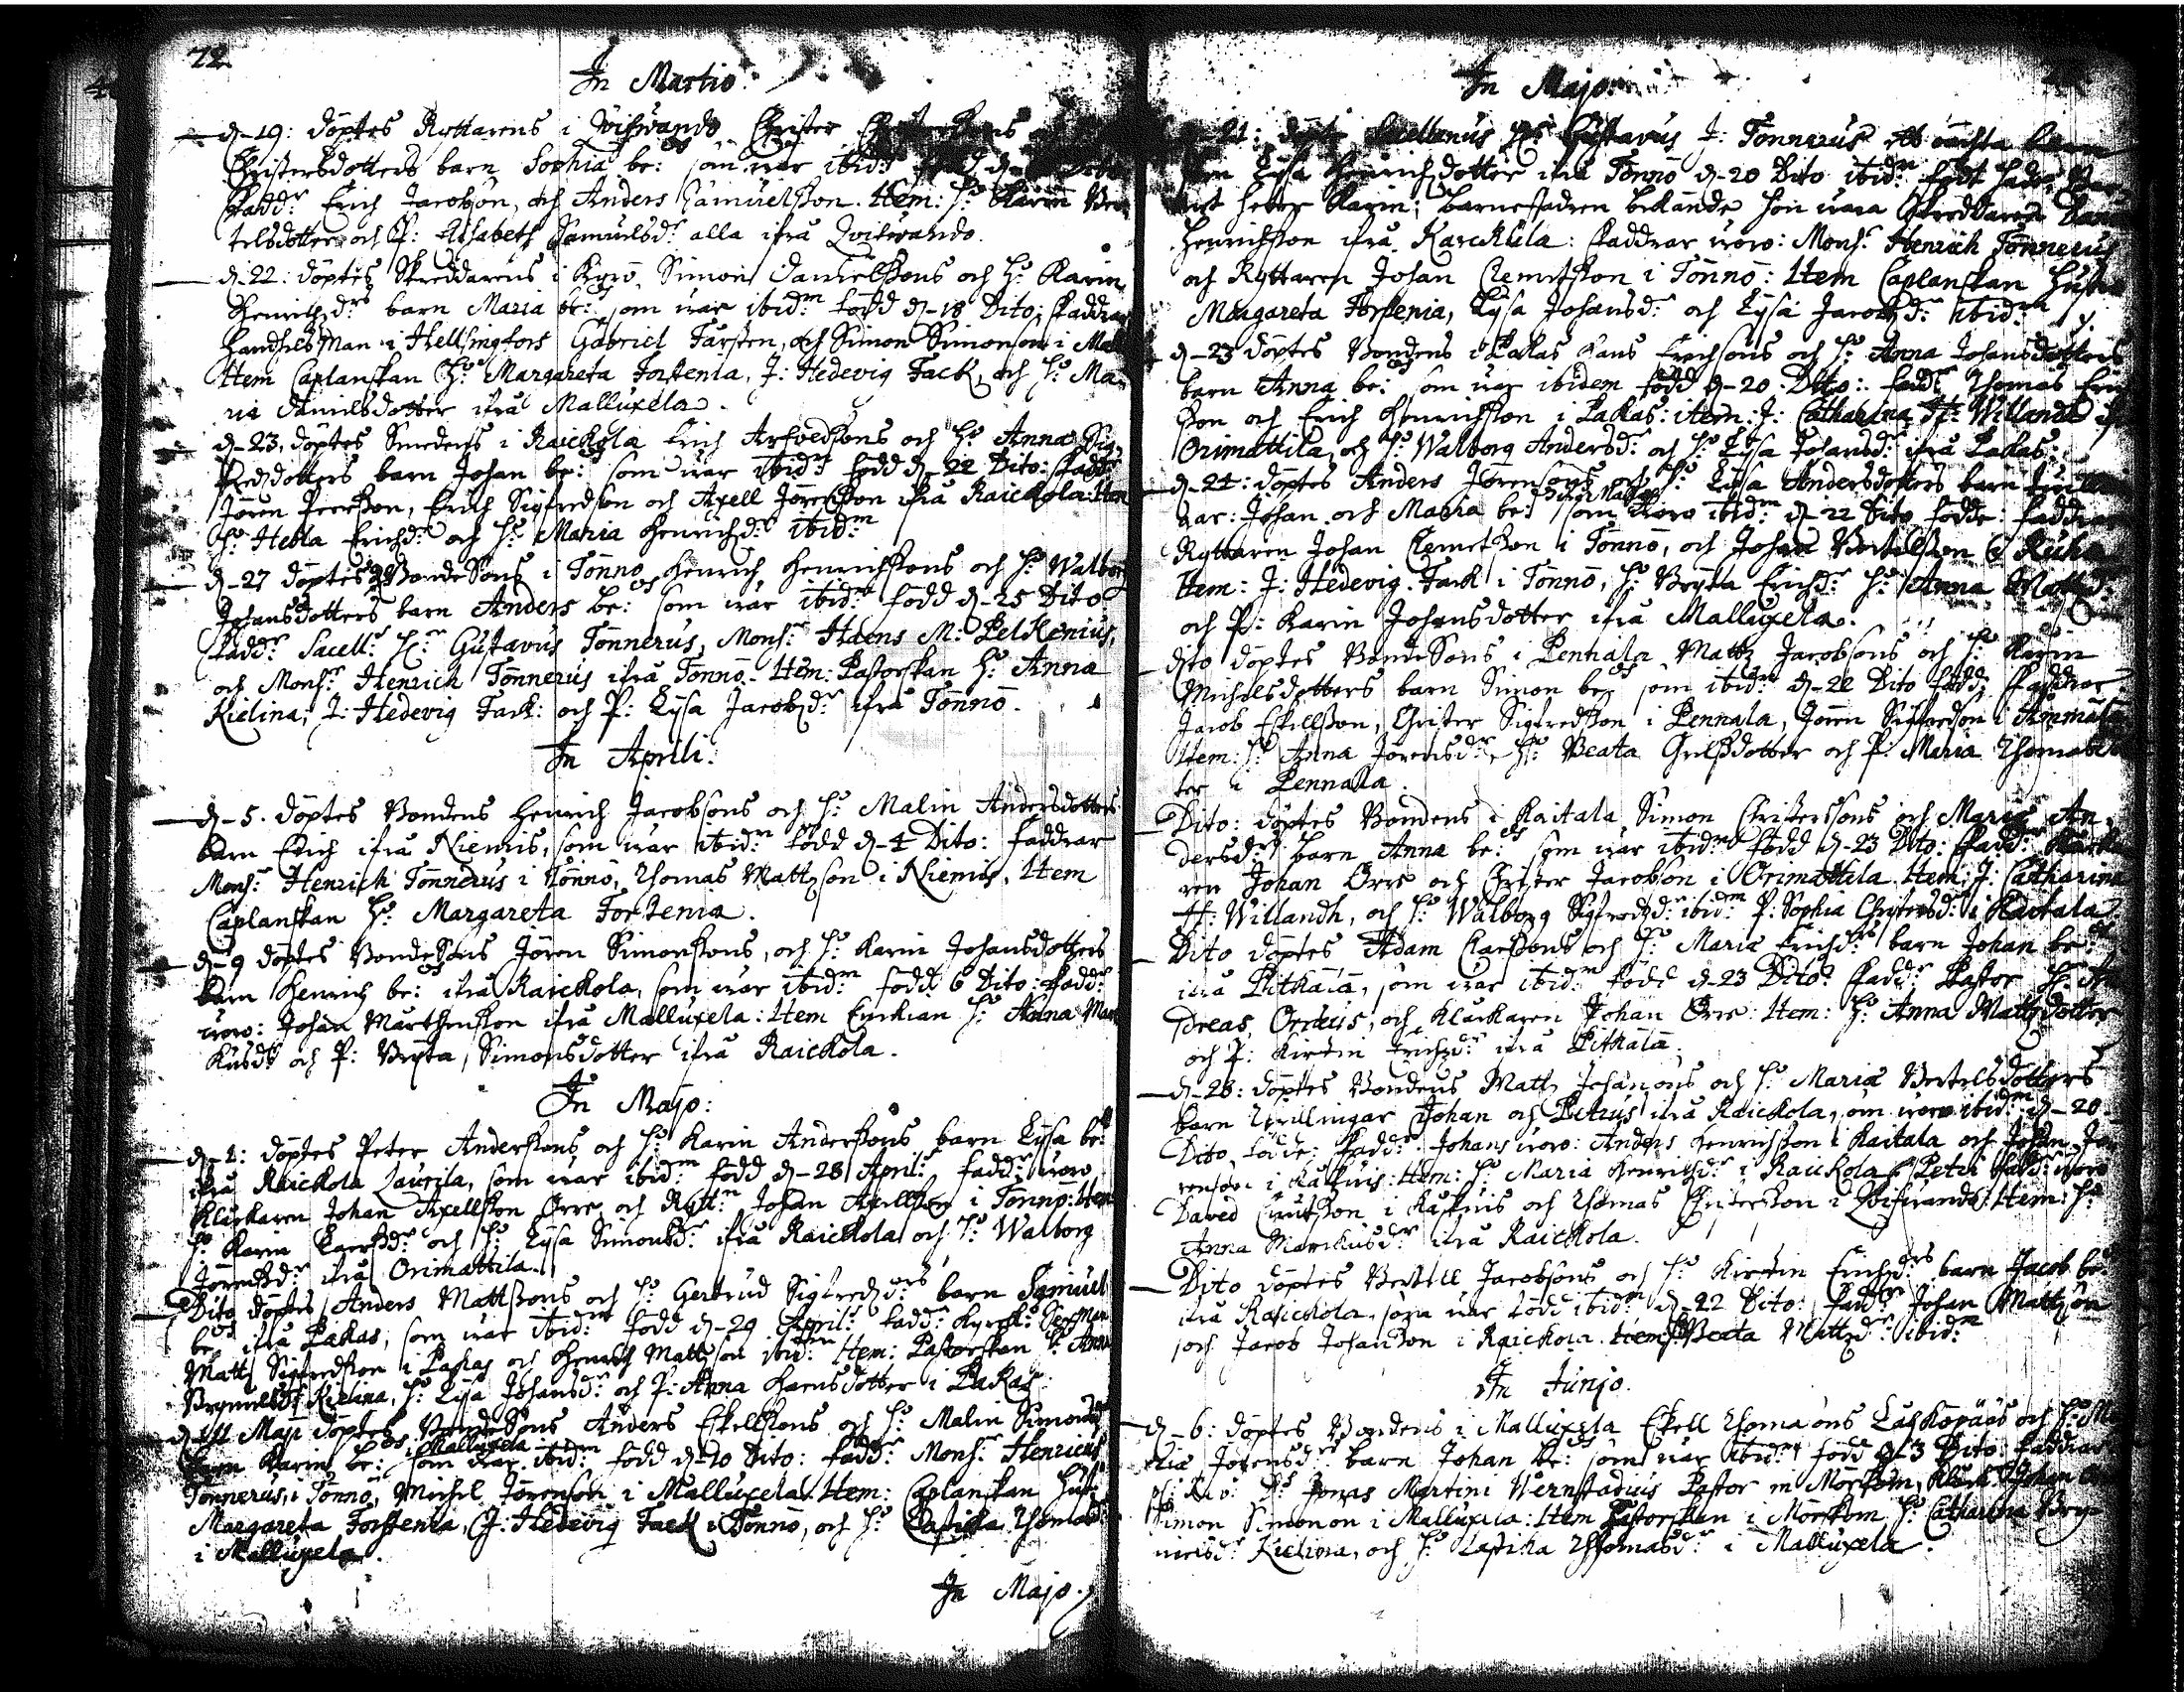 72
In Martio:
d-19: döptes Ryttarens i Christer
Christersdotters barn Sophia be: som war ibid:
Fadd:r Erich Jacobson, och Anders Samuelsson. Item: H:o Karin Ber-
telsdotter och P: Elisabeth Samuelsd:r alla ifrå
d-22: döptes Skreddarens i Simon Danielssons och H:o Karin
Henrichsd:rs barn Maria be: som war ibid:m född d-18 Dito; Faddrar
Handels Man i Hellsingfors Gabriel Farsten, och Simon Simonson i
Item Caplanskan H:o Margareta Forstenia, J: Hedevig Fack, och H:o Ma-
ria Danielsdotter ifrå Malluxela.
d-23, döptes Smedens i Raickola Erich Arfvedssons och H:o Anna Sig-
fredsdotters barn Johan be: som war ibid:m född d-22 Dito: Fadd:r
Jören Peersson, Erich Sigfredson och Axell Jörensson ifrå Raickola: Item
H:o Hebla Erichsd:r och H:o Maria Henrichsd:r ibid:m
d-27 döptes BondeSons i Tönnö Henrich Henrichssons och H:o Walborg
Johansdotters barn Anders be: som war ibid:m född d-25 Dito
Fadd:r Sacell:s H:r Gustavus Tönnerus, Mons:r Haens M: Pelkenius,
och Mons:r Henrich Tönnerus ifrå Tönnö. Item: Pastorskan H:o Anna
Kielina, J: Hedevig Fack: och P: Lysa Jacobsd:r ifrå Tönnö.
In Aprili:
d-5. döptes Bondens Henrich Jacobsons och H:o Malin Andersdotters
barn Erich ifrå Niemis, som war ibid:m född d-4 Dito: faddrar
Mons:r Henrich Tönnerus i Tönnö, Thomas Mattzson i Niemis, Item
Caplanskan H:o Margareta Forstenia.
d-9 döptes BondeSons Jören Simonssons, och H:o Karin Johansdotters
barn Henrich be: ifrå Raickola, som war ibid:m född 6 Dito: Fadd:r
woro: Johan Mårthensson ifrå Malluxela: Item Enckian H:o Anna Mar-
kusd:r och P: Brijta Simonsdotter ifrå Raickola.
In Majo:
d-1: döptes Peter Anderssons och H:o Karin Anderssons barn Lysa be:
ifrå Raickola Laurila, som war ibid:m född d-28 April: Fadd:r woro
Klåckaren Johan Axellsson Orre och Rytt:n Johan Axellsson i Tönnö: Item
H:o Karin Larsd:r och H:o Lysa Simonsd:r ifrå Raickola och H:o Walborg
Jörensd:r ifrå Orimattila.
Dito döptes Anders Mattssons och H:o Gertrud Sigfredsd:rs barn Samuel
be: ifrå Pakas, som war ibid:m född d-29 April: Fadd:r
Matts Sigfredsson i Pakas och Henrich Mattzson ibid:m Item: Pastorskan H:o Anna
Brynnelsd:r Kielina, H:o Lysa Johansd:r och P: Anna Haensdotter i Pakas.
d-11 Maji döptes BondeSons Anders Eskellssons och H:o Malin Simonsd:rs
barn Karin be: i Malluxela som war ibid:m född d-10 Dito: Fadd:r Mons:r Henricus
Tönnerus, i Tönnö, Michel Jörenson i Malluxela. Item: Caplanskan Hust:
Margareta Forstenia, J: Hedevig Fack i Tönnö, och H:o Thomasd:r
i Malluxela.
In Majo.
In Majo:
d-21: döpte Sacellanus H:r Gustavus J: Tönnerus ett oächta barn
Lysa Henrichsdotter ifrå Tönnö d-20 Dito ibid:m födt
Karin; Barnefadren bekände hon wara Skreddaren
Henrichsson ifrå Karckula: Faddrar woro: Mons:r Henrich Tönnerus
och Ryttaren Johan Clemetsson i Tönnö: Item Caplanskan Hustro
Margareta Forstenia, Lysa Johansd:r och Lysa Jacobsd:r ibid:m
d-23 döptes Bondens i Pakas Hans Erichsons och H:o Anna Johansdotters
barn Anna be: som war ibidem född d-20: Dito: fadd:r Thomas Erich-
son och Erich Henrichsson i Pakas: item: J: Catharina H: Willandh
Orimattila, och H:o Walborg Andersd:r och H:o Lysa Johansd:r ifrå Pakas.
d-24: döptes Anders Jörensons och H:o Lysa Andersdotters barn
gar: Johan och Maria be: som woro ibid:m d-22 Dito födde: faddrar
Ryttaren Johan Clemetsson i Tönnö, och Johan Bertelsson
Item: J: Hedevig Fack i Tönnö, H:o Brijta Erichsd:r H:o Anna Mattsd:r
och P: Karin Johansdotter ifrå Malluxela.
Dito döptes BondeSons i Pennala Mattz Jacobsons och H:o Karin
Michelsdotters barn Simon be: som ibid:m d-22 Dito född; Faddrar
Jacob Eskellsson, Christer Sigfredsson i Pennala, Jören Sigfredson i
Item: H:o Anna Jörensd:r, H:o Beata Grelsdotter och P: Maria Thomasdot-
ter i Pennala.
Dito: döptes Bondens i Kaitala Simon Christerssons och Maria An-
dersd:rs barn Anna be: som war ibid:m född d-23 Dito: Fadd:r Klåcka-
ren Johan Orre och Christer Jacobson i Orimattila. Item: J: Catharina
H: Willandh, och H:o Walborg Sigfredsd:r ibid:m P: Sophia Christersd:r i Kaitala.
Dito döptes Adam Classons och H:o Maria Erichsd:rs barn Johan be:
ifrå Pitkälä, som war ibid:m född d-23 Dito: Fadd:r Pastor H:r An-
dreas Orræus, och Klåckaren Johan Orre: Item: H:o Anna Mattzdotter
och P: Kirstin Erichsd:r ifrå Pitkälä.
d-28: döptes Bondens Matts Johansons och H:o Maria Bertelsdotters
barn Twillingar Johan och Petrus ifrå Raickola, som woro ibid:m d-20
Dito födde: Fadd:r Johans woro: Anders Henrichsson i Kaitala och Johan Jö-
renson i Kaskuis: Item: H:o Maria Henrichsd:r i Raickola. Petri Fadd:r woro
Daved Cnutsson i Kaskuis och Thomas Christersson i Item: H:o
Anna Marckusd:r ifrå Raickola.
Dito döptes Bertill Jacobsons och H:o Kirstin Erichsd:rs barn Jacob be:
ifrå Raickola, som war född ibid:m d-22 Dito: Fadd:r Johan Mattzson
och Jacob Johansson i Raickola. Item: H:o Beata Mattzd:r ibid:m
In Junjo.
d-6: döptes Bondens i Malluxela Eskell Thomasons och H:o Ma-
ria Jörensd:rs barn Johan be: som war ibid:m född d-3 Dito: Faddrar
Jonas Martini Wernstadius Pastor in Mörskom, Klåck: Johan
Simon Simonson i Malluxela: Item Pastorskan i Mörskom H:o Catharina Bryn-
nielsd:r Kielina, och H:o Thomasd:r i Malluxela.